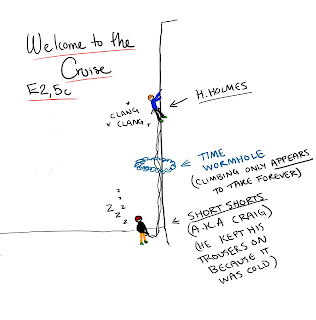 Welcome to the
Cruise
E2,5c
H.HOLMES
CLANG
CLANG
TIME
WORMHOLE
(CLIMBING ONLY APPEARS
TO TAKE FOREVER)
Z z z z z
SHORT SHORTS
(A.K.A CRAIG)
(HE KEPT HIS
TROUSERS ON
BECAUSE IT
WAS COLD)